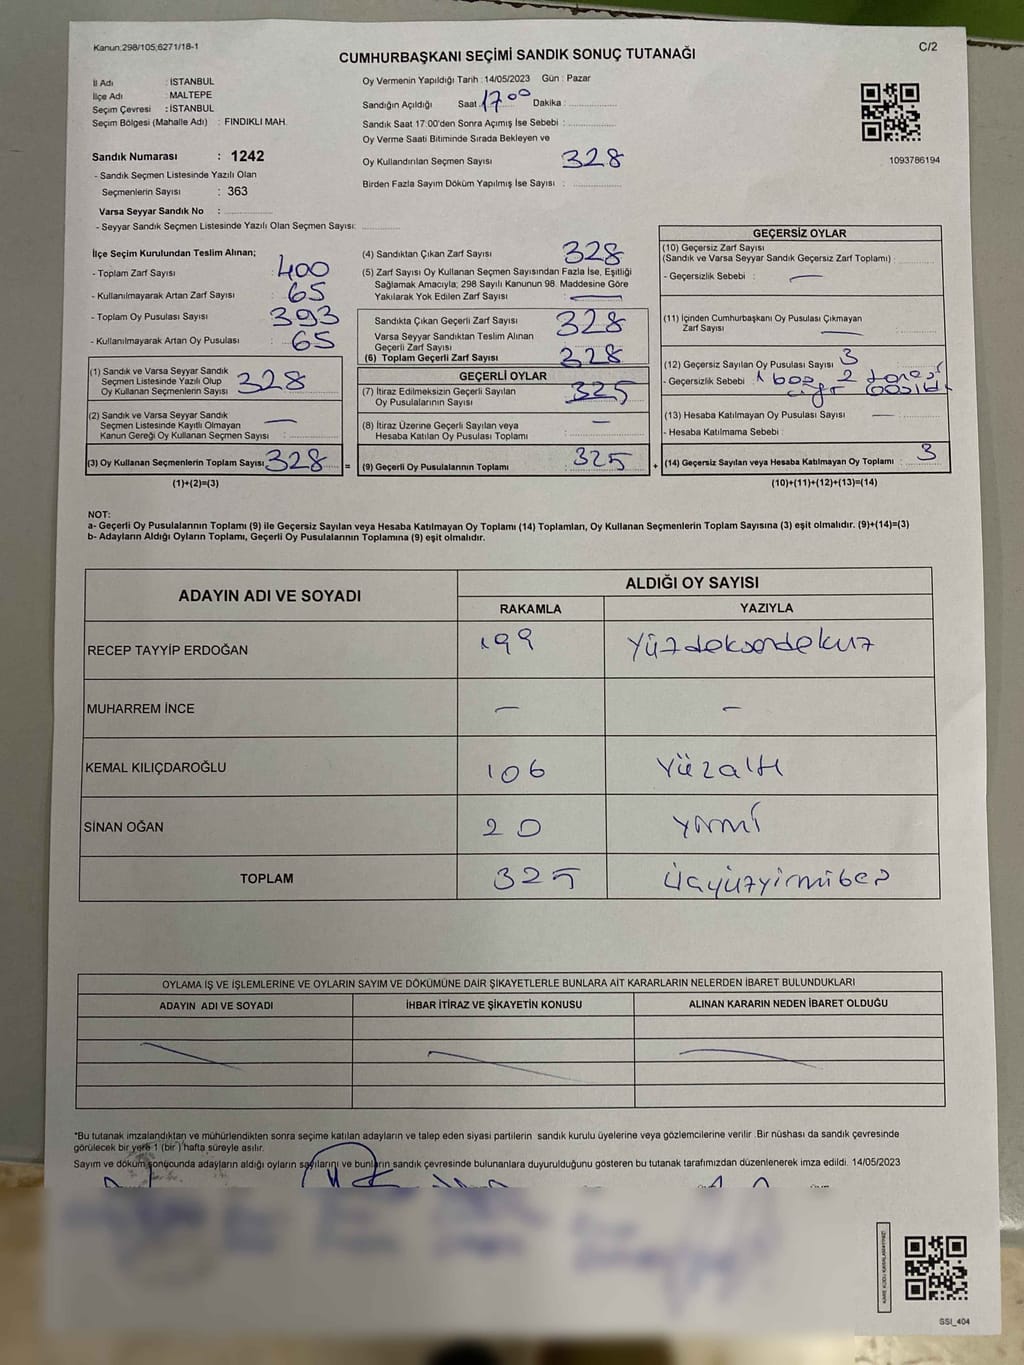 Kanun:298/105,6271/18-1
C/2
CUMHURBAŞKANI SEÇİMİ SANDIK SONUÇ TUTANAĞI
İl Adı : İSTANBUL
İlçe Adı : MALTEPE
Seçim Çevresi : İSTANBUL
Seçim Bölgesi (Mahalle Adı) : FINDIKLI MAH.
Sandık Numarası : 1242
- Sandık Seçmen Listesinde Yazılı Olan
Seçmenlerin Sayısı : 363
Varsa Seyyar Sandık No :
- Seyyar Sandık Seçmen Listesinde Yazılı Olan Seçmen Sayısı:
Oy Vermenin Yapıldığı Tarih : 14/05/2023 Gün : Pazar
Sandığın Açıldığı Saat 17 00 Dakika :
Sandık Saat 17:00'den Sonra Açımış İse Sebebi :
Oy Verme Saati Bitiminde Sırada Bekleyen ve
Oy Kullandırılan Seçmen Sayısı 328
Birden Fazla Sayım Döküm Yapılmış İse Sayısı :
1093786194
İlçe Seçim Kurulundan Teslim Alınan;
- Toplam Zarf Sayısı : 400
- Kullanılmayarak Artan Zarf Sayısı : 65
- Toplam Oy Pusulası Sayısı : 393
- Kullanılmayarak Artan Oy Pusulası : 65
(1) Sandık ve Varsa Seyyar Sandık
Seçmen Listesinde Yazılı Olup
Oy Kullanan Seçmenlerin Sayısı 328
(2) Sandık ve Varsa Seyyar Sandık
Seçmen Listesinde Kayıtlı Olmayan
Kanun Gereği Oy Kullanan Seçmen Sayısı : —
(3) Oy Kullanan Seçmenlerin Toplam Sayısı 328 =
(1)+(2)=(3)
(4) Sandıktan Çıkan Zarf Sayısı 328
(5) Zarf Sayısı Oy Kullanan Seçmen Sayısından Fazla İse, Eşitliği
Sağlamak Amacıyla; 298 Sayılı Kanunun 98. Maddesine Göre
Yakılarak Yok Edilen Zarf Sayısı : —
Sandıkta Çıkan Geçerli Zarf Sayısı 328
Varsa Seyyar Sandıktan Teslim Alınan
Geçerli Zarf Sayısı
(6) Toplam Geçerli Zarf Sayısı 328
GEÇERLİ OYLAR
(7) İtiraz Edilmeksizin Geçerli Sayılan
Oy Pusulalarının Sayısı 325
(8) İtiraz Üzerine Geçerli Sayılan veya
Hesaba Katılan Oy Pusulası Toplamı : —
(9) Geçerli Oy Pusulalarının Toplamı : 325 +
GEÇERSİZ OYLAR
(10) Geçersiz Zarf Sayısı
(Sandık ve Varsa Seyyar Sandık Geçersiz Zarf Toplamı) :
- Geçersizlik Sebebi : —
(11) İçinden Cumhurbaşkanı Oy Pusulası Çıkmayan
Zarf Sayısı —
(12) Geçersiz Sayılan Oy Pusulası Sayısı 3
- Geçersizlik Sebebi 1 boş 2
(13) Hesaba Katılmayan Oy Pusulası Sayısı : —
- Hesaba Katılmama Sebebi :
(14) Geçersiz Sayılan veya Hesaba Katılmayan Oy Toplamı : 3
(10)+(11)+(12)+(13)=(14)
NOT:
a- Geçerli Oy Pusulalarının Toplamı (9) ile Geçersiz Sayılan veya Hesaba Katılmayan Oy Toplamı (14) Toplamları, Oy Kullanan Seçmenlerin Toplam Sayısına (3) eşit olmalıdır. (9)+(14)=(3)
b- Adayların Aldığı Oyların Toplamı, Geçerli Oy Pusulalarının Toplamına (9) eşit olmalıdır.
ADAYIN ADI VE SOYADI
ALDIĞI OY SAYISI
RAKAMLA YAZIYLA
RECEP TAYYİP ERDOĞAN 199 Yüzdoksandokuz
MUHARREM İNCE — —
KEMAL KILIÇDAROĞLU 106 Yüzaltı
SİNAN OĞAN 20 Yirmi
TOPLAM 325 Üçyüzyirmibeş
OYLAMA İŞ VE İŞLEMLERİNE VE OYLARIN SAYIM VE DÖKÜMÜNE DAİR ŞİKAYETLERLE BUNLARA AİT KARARLARIN NELERDEN İBARET BULUNDUKLARI
ADAYIN ADI VE SOYADI İHBAR İTİRAZ VE ŞİKAYETİN KONUSU ALINAN KARARIN NEDEN İBARET OLDUĞU
*Bu tutanak imzalandıktan ve mühürlendikten sonra seçime katılan adayların ve talep eden siyasi partilerin sandık kurulu üyelerine veya gözlemcilerine verilir. Bir nüshası da sandık çevresinde
görülecek bir yere 1 (bir) hafta süreyle asılır.
Sayım ve döküm sonucunda adayların aldığı oyların sayılarını ve bunların sandık çevresinde bulunanlara duyurulduğunu gösteren bu tutanak tarafımızdan düzenlenerek imza edildi. 14/05/2023
SSI_404